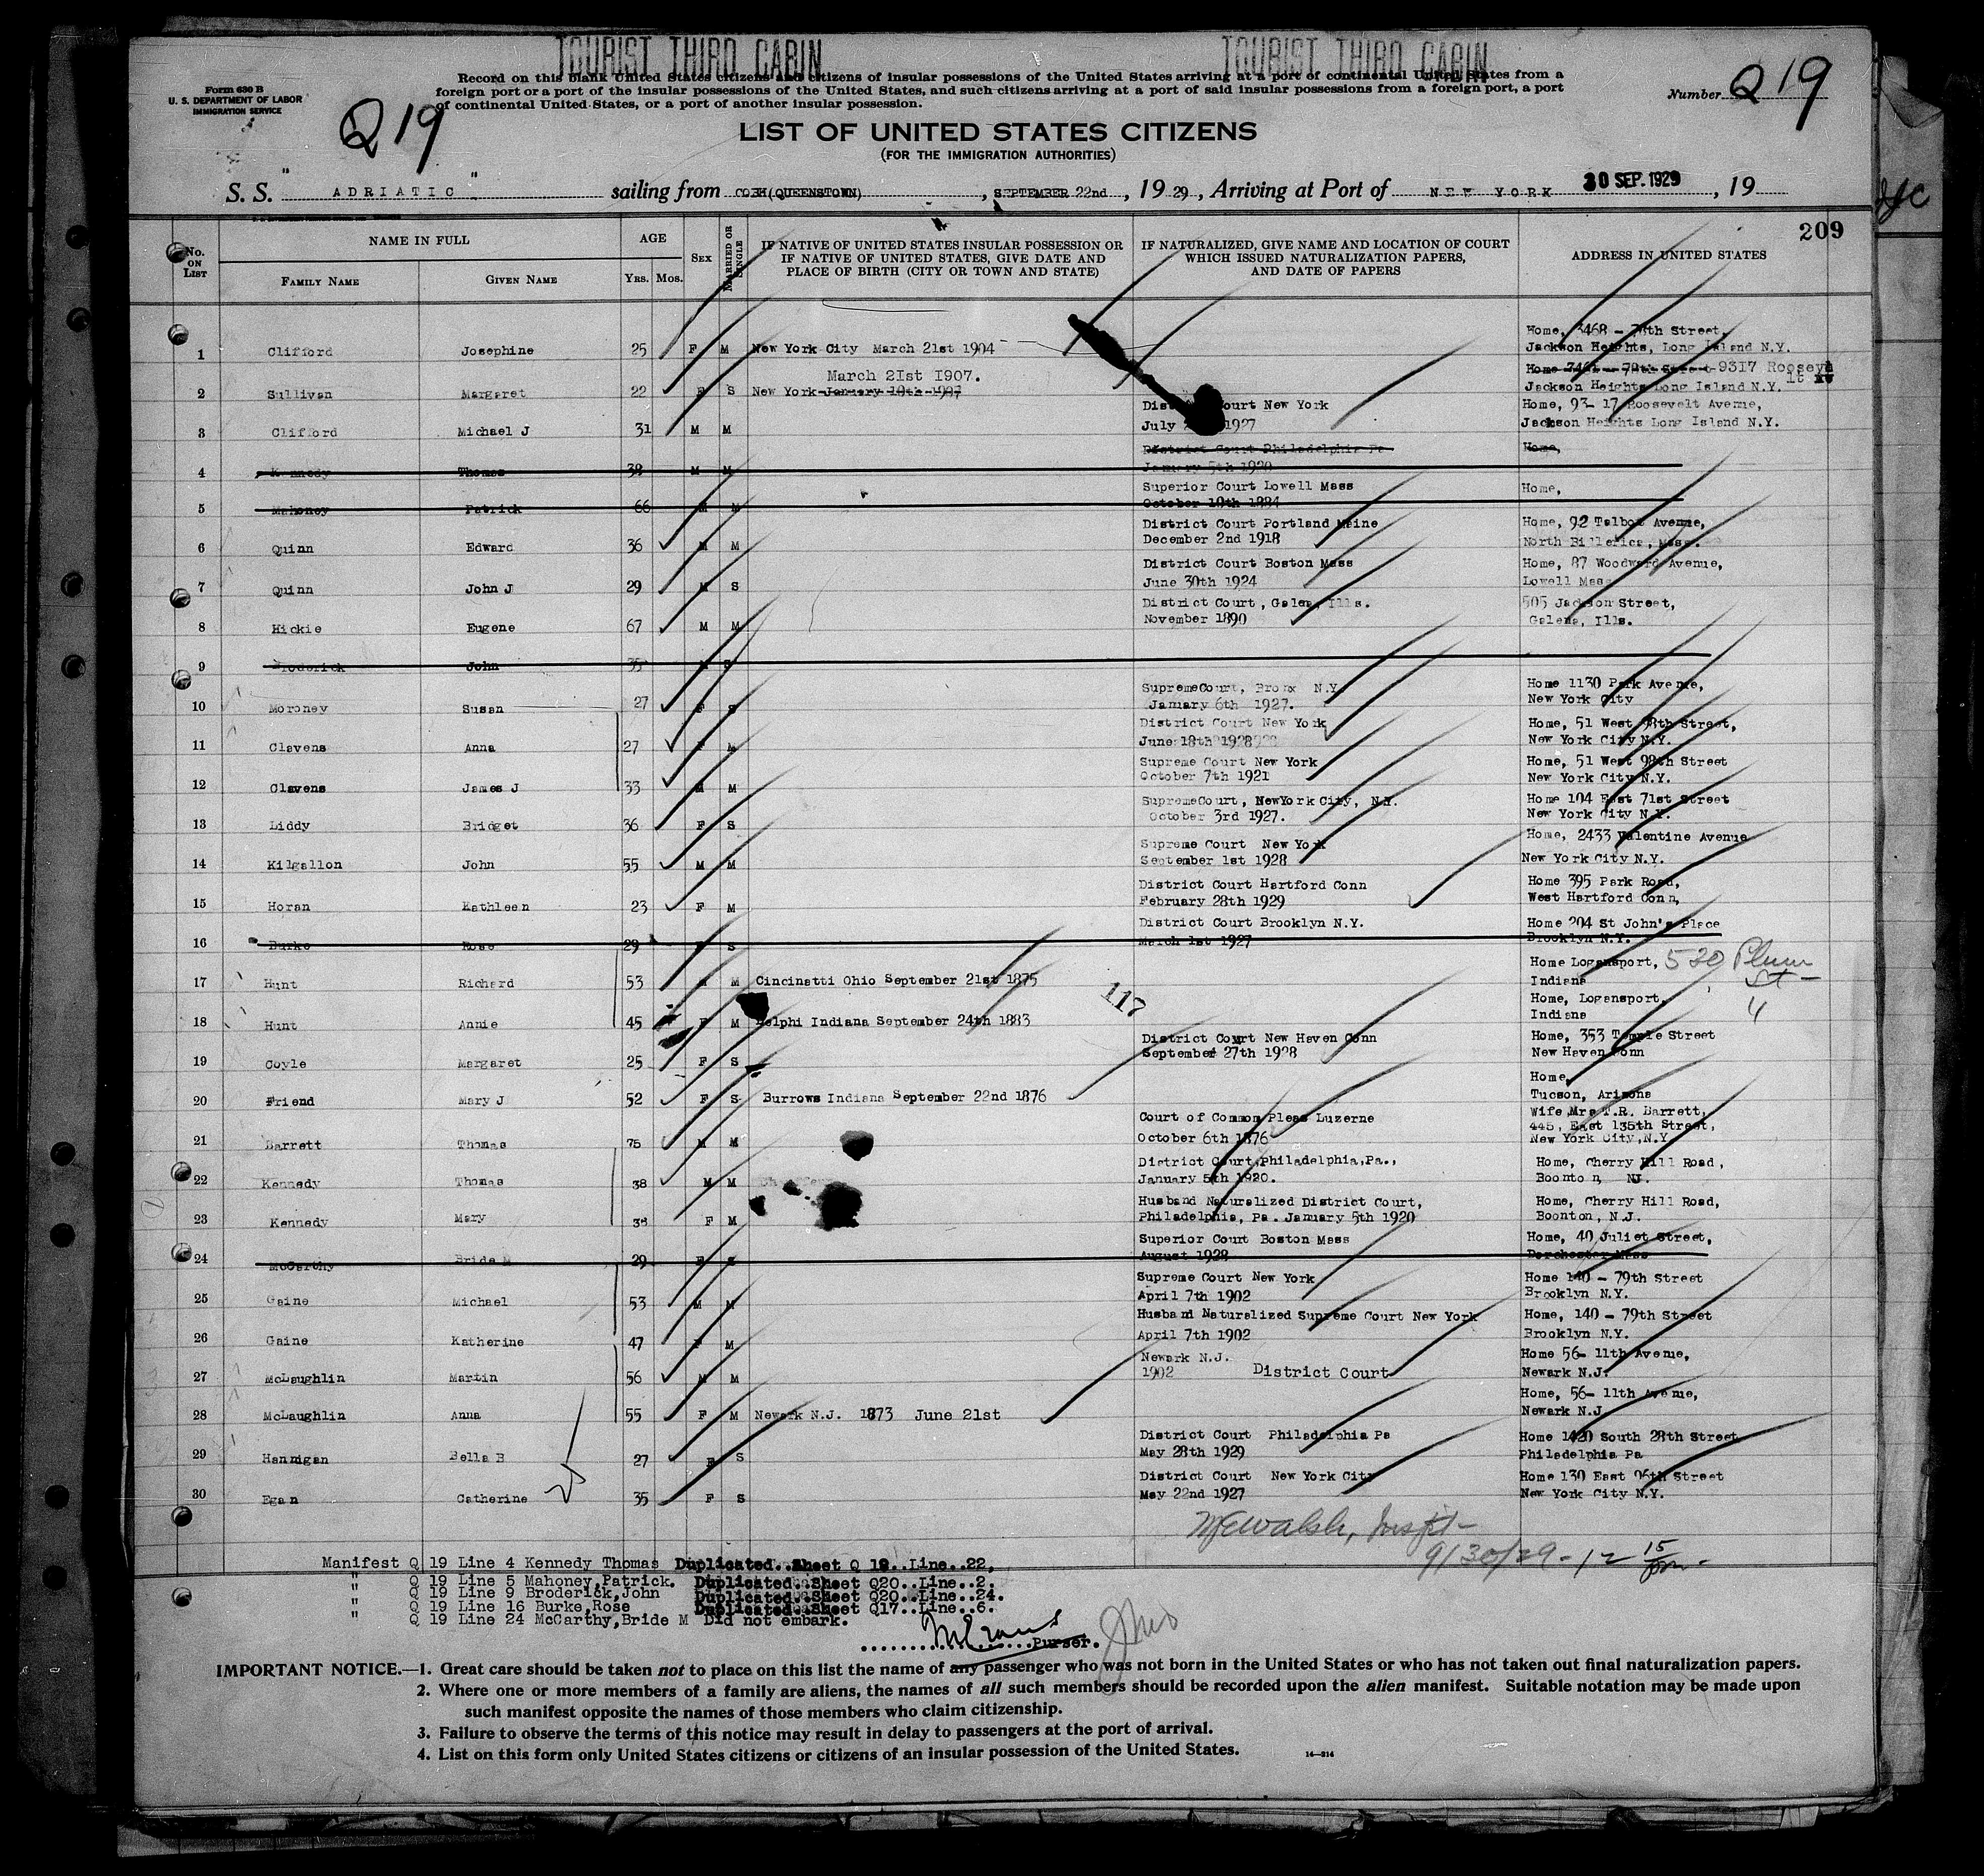 TOURIST THIRD CABIN TOURIST THIRD CABIN
Form 630 B
U. S. DEPARTMENT OF LABOR
IMMIGRATION SERVICE
Q 19
Record on this blank United States citizens and citizens of insular possessions of the United States arriving at a port of continental United States from a
foreign port or a port of the insular possessions of the United States, and such citizens arriving at a port of said insular possessions from a foreign port, a port
of continental United States, or a port of another insular possession.
Number Q 19
LIST OF UNITED STATES CITIZENS
(FOR THE IMMIGRATION AUTHORITIES)
S. S. " ADRIATIC " sailing from COBH (QUEENSTOWN), SEPTEMBER 22nd, 19 29, Arriving at Port of NEW YORK 30 SEP. 1929, 19
209
No. ON LIST
NAME IN FULL
FAMILY NAME GIVEN NAME
AGE
YRS. MOS.
SEX
MARRIED OR SINGLE
IF NATIVE OF UNITED STATES INSULAR POSSESSION OR
IF NATIVE OF UNITED STATES, GIVE DATE AND
PLACE OF BIRTH (CITY OR TOWN AND STATE)
IF NATURALIZED, GIVE NAME AND LOCATION OF COURT
WHICH ISSUED NATURALIZATION PAPERS,
AND DATE OF PAPERS
ADDRESS IN UNITED STATES
Home, 3468 - 78th Street,
1 Clifford Josephine 25 F M New York City March 21st 1904 Jackson Heights, Long Island N.Y.
March 21st 1907. Home 9317 Roosev
2 Sullivan Margaret 22 F S New York January 18th 1907 Jackson Heights Long Island N.Y. lt
District Court New York Home, 93- 17 Roosevelt Avenue,
3 Clifford Michael J 31 M M July 1927 Jackson Heights Long Island N.Y.
District Court Philadelphia Pa Home,
4 Kennedy Thomas 38 M M January 5th 1920
Superior Court Lowell Mass Home,
5 Mahoney Patrick 66 M M October 18th 1884
District Court Portland Maine Home, 92 Talbot Avenue,
6 Quinn Edward 36 M M December 2nd 1918 North Billerica, Mass.
District Court Boston Mass Home, 87 Woodward Avenue,
7 Quinn John J 29 M S June 30th 1924 Lowell Mass
District Court, Galena, Ills. 505 Jackson Street,
8 Hickie Eugene 67 M M November 1890 Galena, Ills.
9 Broderick John 35 M S
SupremeCourt, Bronx N.Y. Home 1130 Park Avenue,
10 Moroney Susan 27 F S January 6th 1927. New York City
District Court New York Home, 51 West 98th Street,
11 Clavens Anna 27 F M June 18th 1928 New York City N.Y.
Supreme Court New York Home, 51 West 98th Street
12 Clavens James J 33 M M October 7th 1921 New York City N.Y.
SupremeCourt, NewYork City, N.Y. Home 104 East 71st Street
13 Liddy Bridget 36 F S October 3rd 1927. New York City N.Y.
Supreme Court New York Home, 2433 Valentine Avenue
14 Kilgallon John 55 M M September 1st 1928 New York City N.Y.
District Court Hartford Conn Home 395 Park Road,
15 Horan Kathleen 23 F M February 28th 1929 West Hartford Conn,
District Court Brooklyn N.Y. Home 204 St John's Place
16 Burke Rose 29 F S March 1st 1927 Brooklyn N.Y.
Home Logansport, 520 Plum St
17 Hunt Richard 53 M M Cincinatti Ohio September 21st 1875 Indiana
117 Home, Logansport, "
18 Hunt Annie 45 F M Delphi Indiana September 24th 1883 Indiana
District Court New Haven Conn Home, 353 Temple Street
19 Coyle Margaret 25 F S September 27th 1928 New Haven Conn
Home,
20 Friend Mary J 52 F S Burrows Indiana September 22nd 1876 Tucson, Arizona
Court of Common Pleas Luzerne Wife Mrs T.R. Barrett, 445, East 135th Street,
21 Barrett Thomas 75 M M October 6th 1876 New York City, N.Y
District Court, Philadelphia, Pa., Home, Cherry Hill Road,
22 Kennedy Thomas 38 M M January 5th 1920. Boonton, NJ.
Husband Naturalized District Court, Home, Cherry Hill Road,
23 Kennedy Mary 38 F M Philadelphia, Pa. January 5th 1920 Boonton, N.J.
Superior Court Boston Mass Home, 40 Juliet Street,
24 McCarthy Bride M 29 F S August 1928 Dorchester Mass
Supreme Court New York Home 140 - 79th Street
25 Gaine Michael 53 M M April 7th 1902 Brooklyn N.Y.
Husband Naturalized Supreme Court New York Home, 140 - 79th Street
26 Gaine Katherine 47 F M April 7th 1902 Brooklyn N.Y.
Newark N.J. Home 56- 11th Avenue,
27 McLaughlin Martin 56 M M 1902 District Court Newark N.J.
Home, 56- 11th Avenue,
28 McLaughlin Anna 55 F M Newark N.J. 1873 June 21st Newark N.J
District Court Philadelphia Pa Home 1420 South 28th Street
29 Hannigan Bella B 27 F S May 28th 1929 Philadelphia Pa
District Court New York City Home 130 East 96th Street
30 Egan Catherine 35 F S May 22nd 1927 New York City N.Y.
9/30/29 - 12 15 pm -
Manifest Q 19 Line 4 Kennedy Thomas Duplicated..Sheet Q 19..Line..22,
" Q 19 Line 5 Mahoney,Patrick. Duplicated..Sheet Q20..Line..2.
" Q 19 Line 9 Broderick,John Duplicated..Sheet Q20..Line..24.
" Q 19 Line 16 Burke,Rose Duplicated..Sheet Q17..Line..6.
" Q 19 Line 24 McCarthy,Bride M Did not embark.
Purser.
IMPORTANT NOTICE.—1. Great care should be taken not to place on this list the name of any passenger who was not born in the United States or who has not taken out final naturalization papers.
2. Where one or more members of a family are aliens, the names of all such members should be recorded upon the alien manifest. Suitable notation may be made upon
such manifest opposite the names of those members who claim citizenship.
3. Failure to observe the terms of this notice may result in delay to passengers at the port of arrival.
4. List on this form only United States citizens or citizens of an insular possession of the United States.
14—314